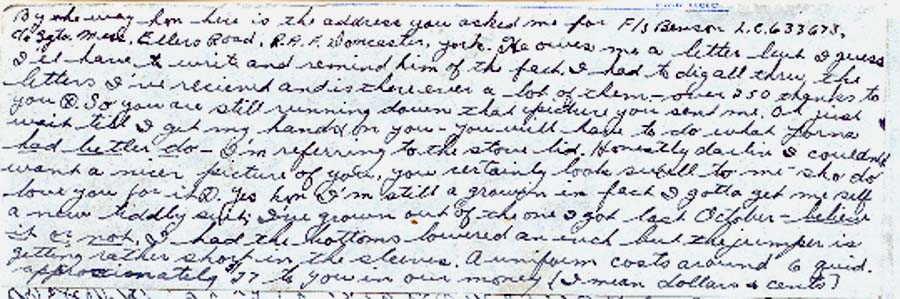 By the way hon here is the address you asked me for F/S Benson L.C. 633673,
c/o Sgts Mess, Ellers Road, R.A.F. Doncaster, york. He owes me a letter but I guess
I'll have to write and remind him of the fact, I had to dig all thru, the
letters I've recieved and is there ever a lot of them – over 250 thanks to
you ⊗. So you are still running down that picture you send me. Oh just
wait till I get my hands on you – you will have to do what Lorna
had better do – I'm referring to the stove lid. Honestly darlin I couldn't
want a nicer picture of you, you certainly look swell to me – sho do
love you for it ⊗. Yes hon I'm still a growin in fact I gotta get me self
a new tiddly suit, I've grown out of the one I got last October – believe
it or not, I had the bottoms lowered an inch but the jumper is
getting rather short in the sleeves. A uniform costs around 6 quid.
approximately $27 to you in our money (I mean dollars & cents)